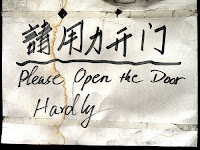 請用力开门
Please Open the Door
Hardly